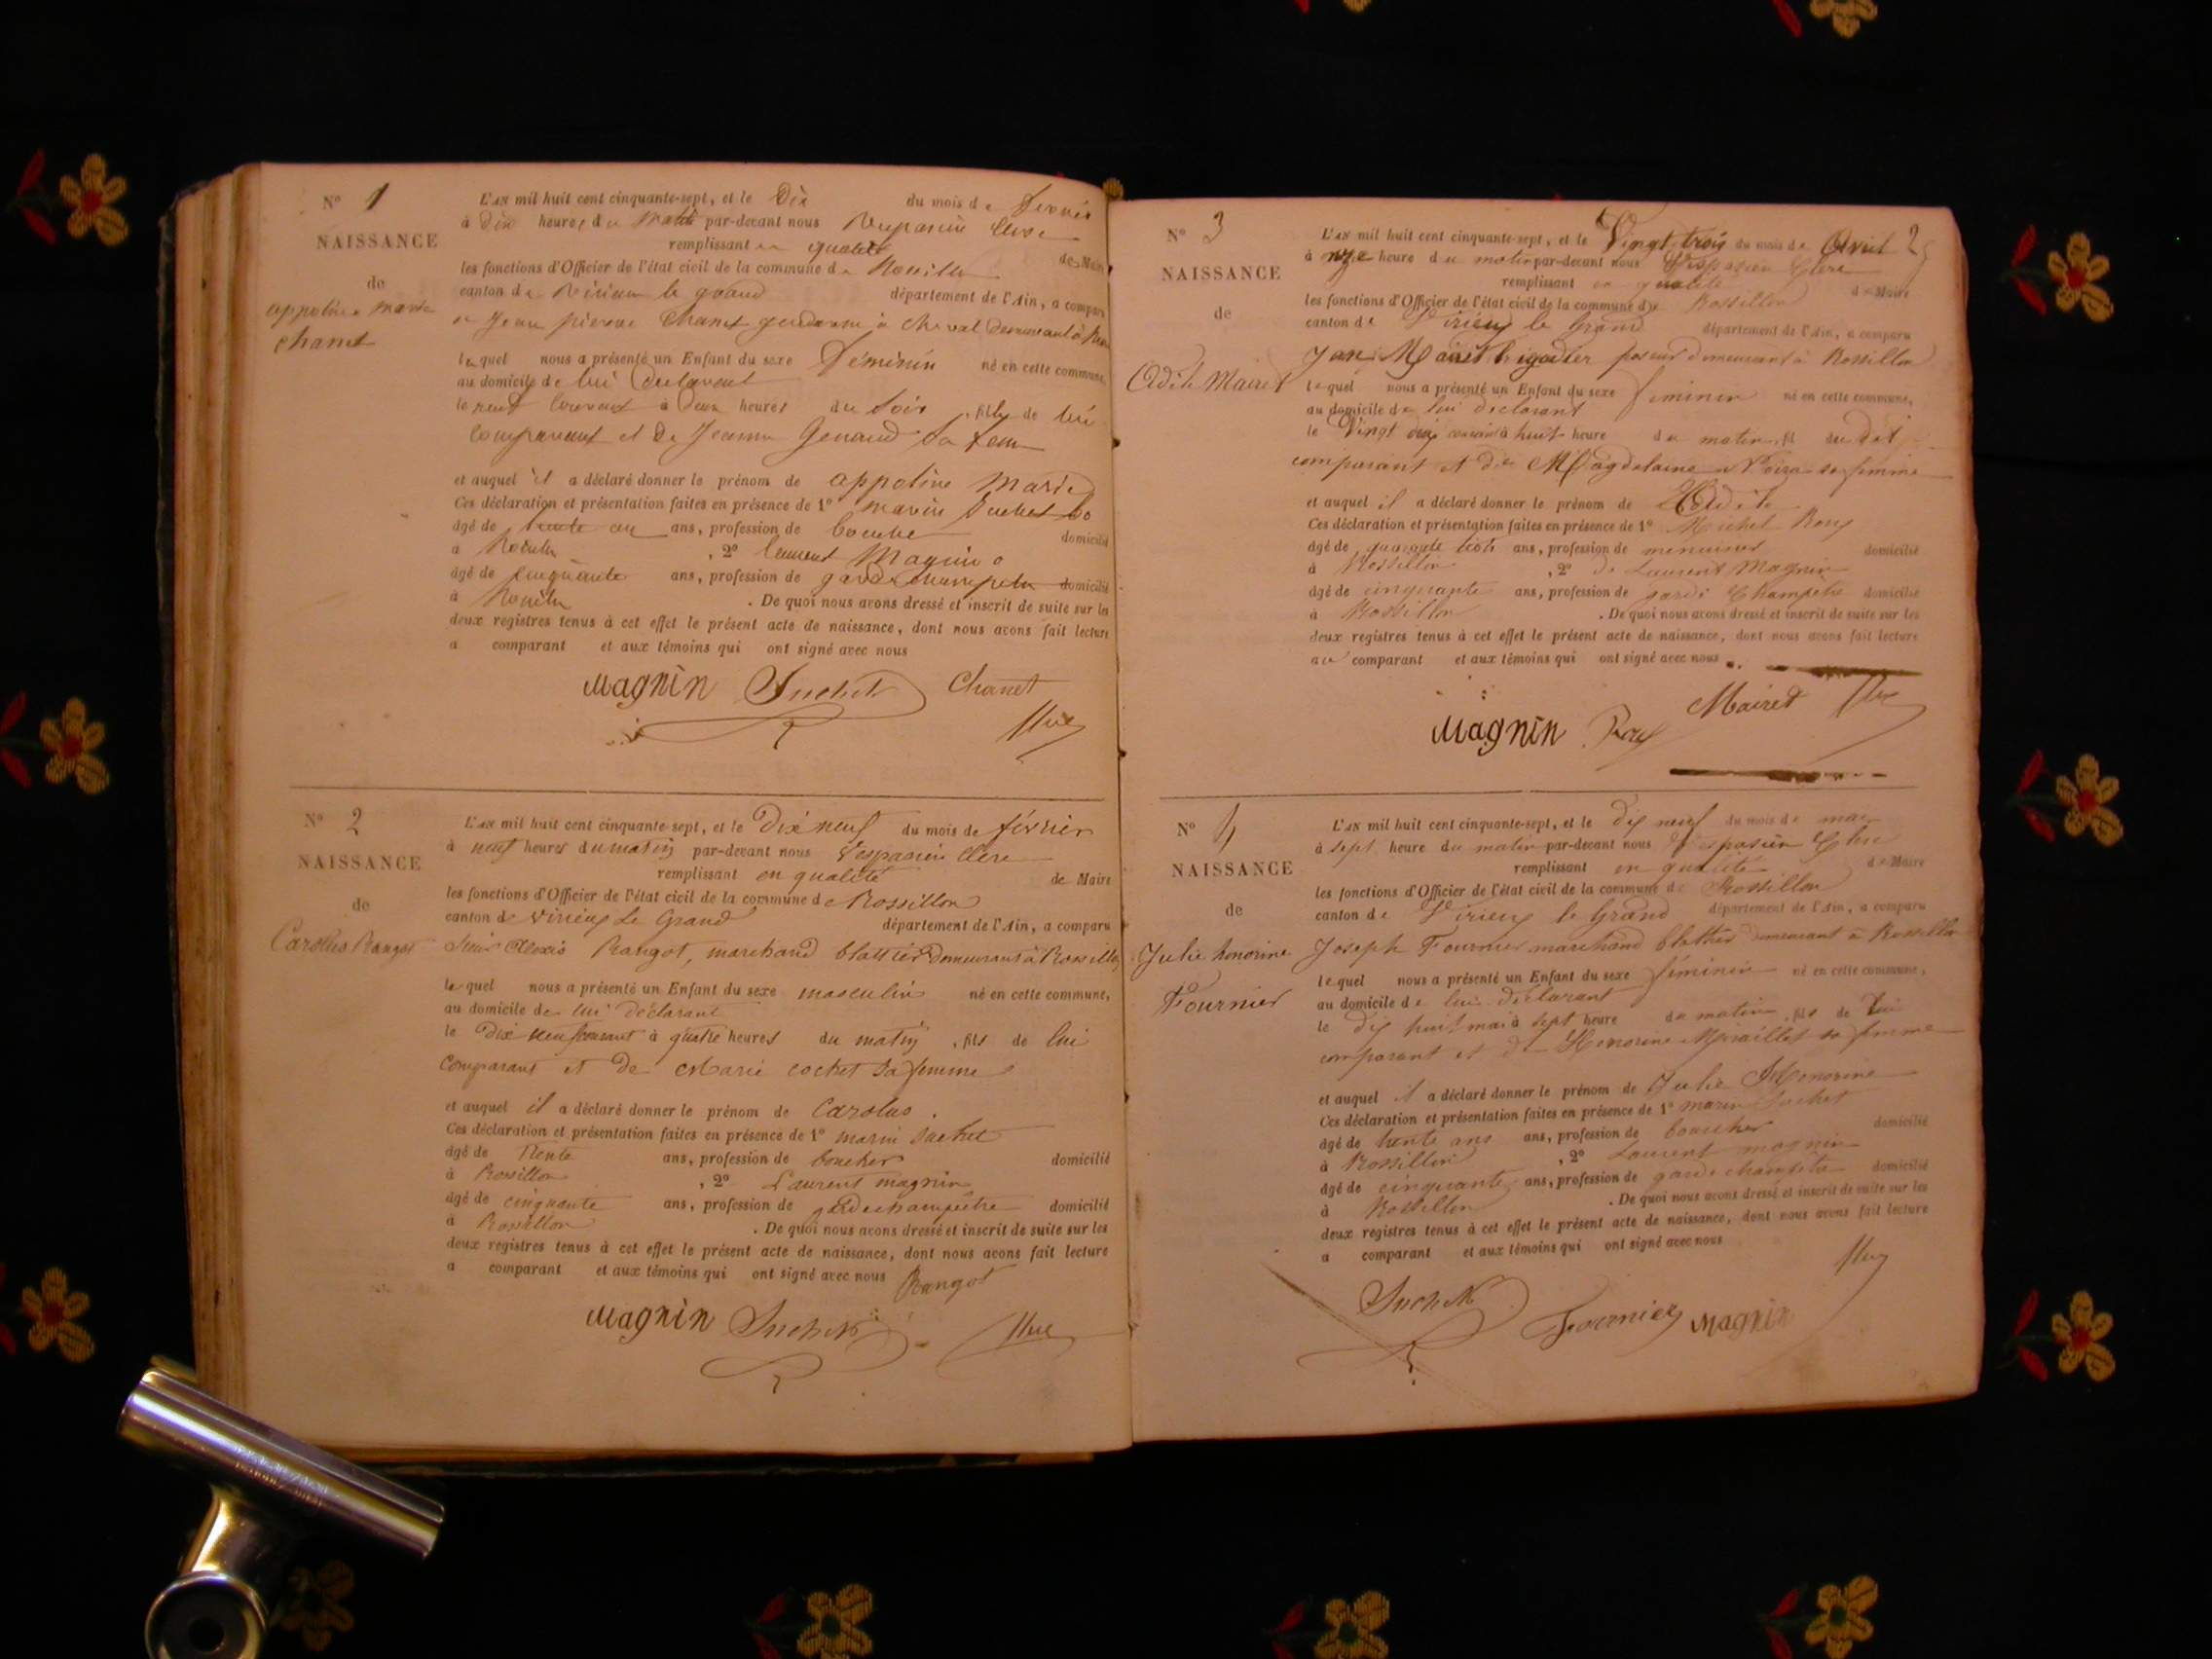 N° 1
NAISSANCE
de
appoline marie
chanet
L'AN mil huit cent cinquante-sept, et le Dix du mois de
à dix heures du matin par-devant nous Vespasien Clerc
remplissant en qualité de Maire
les fonctions d'Officier de l'état civil de la commune de Rossillon
canton de Virieu le grand département de l'Ain, a comparu
Jean pierre Chanet gendarme à cheval demeurant à
lequel nous a présenté un Enfant du sexe féminin né en cette commune,
au domicile de lui déclarant
le neuf courant à Deux heures du Soir, fille de lui
comparant et de Jeanne Genaud sa fem
et auquel il a déclaré donner le prénom de appoline Marie
Ces déclaration et présentation faites en présence de 1° marin Suchet
âgé de trente ans, profession de boucher domicilié
à, 2° laurent Magnin
âgé de cinquante ans, profession de garde champetre domicilié
à. De quoi nous avons dressé et inscrit de suite sur les
deux registres tenus à cet effet le présent acte de naissance, dont nous avons fait lecture
a comparant et aux témoins qui ont signé avec nous
Magnin Suchet Chanet
N° 2
NAISSANCE
de
Carolus Rangot
L'AN mil huit cent cinquante-sept, et le Dix neuf du mois de février
à neuf heures du matin par-devant nous Vespasien Clerc
remplissant en qualité de Maire
les fonctions d'Officier de l'état civil de la commune de Rossillon
canton de Virieu Le Grand département de l'Ain, a comparu
Sieur Alexis Rangot, marchand blattier Demeurant à Rossillon
lequel nous a présenté un Enfant du sexe masculin né en cette commune,
au domicile de lui déclarant
le dix neuf courant à quatre heures du matin, fils de lui
comparant et de Marie cochet sa femme
et auquel il a déclaré donner le prénom de Carolus.
Ces déclaration et présentation faites en présence de 1° marin Suchet
âgé de Trente ans, profession de boucher domicilié
à Rossillon, 2° Laurent magnin
âgé de cinquante ans, profession de garde champêtre domicilié
à Rossillon. De quoi nous avons dressé et inscrit de suite sur les
deux registres tenus à cet effet le présent acte de naissance, dont nous avons fait lecture
a comparant et aux témoins qui ont signé avec nous Rangot
Magnin Suchet
N° 3
NAISSANCE
de
Odile Mairet
L'AN mil huit cent cinquante-sept, et le Vingt-trois du mois de Avril
à onze heure du matin par-devant nous Vespasien Clerc
remplissant en qualité de Maire
les fonctions d'Officier de l'état civil de la commune de Rossillon
canton de Virieu le Grand département de l'Ain, a comparu
Jean Mairet brigadier poseur demeurant à Rossillon
lequel nous a présenté un Enfant du sexe féminin né en cette commune,
au domicile de lui déclarant
le Vingt courant à huit heure du matin, fil du dit
comparant et de Magdelaine sa femme
et auquel il a déclaré donner le prénom de Odile
Ces déclaration et présentation faites en présence de 1° Michel Roux
âgé de quarante ans, profession de menuisier domicilié
à Rossillon, 2° de Laurent Magnin
âgé de cinquante ans, profession de garde Champetre domicilié
à Rossillon. De quoi nous avons dressé et inscrit de suite sur les
deux registres tenus à cet effet le présent acte de naissance, dont nous avons fait lecture
au comparant et aux témoins qui ont signé avec nous
Magnin Roux Mairet
N° 4
NAISSANCE
de
Julie honorine
Fournier
L'AN mil huit cent cinquante-sept, et le dix neuf du mois de mai
à sept heure du matin par-devant nous Vespasien Clerc
remplissant en qualité de Maire
les fonctions d'Officier de l'état civil de la commune de Rossillon
canton de Virieu le Grand département de l'Ain, a comparu
Joseph Fournier marchand blattier demeurant à Rossillon
lequel nous a présenté un Enfant du sexe féminin né en cette commune,
au domicile de lui déclarant
le dix huit mai à sept heure du matin, fils de lui
comparant et de Honorine sa femme
et auquel il a déclaré donner le prénom de Julie Honorine
Ces déclaration et présentation faites en présence de 1° marin Suchet
âgé de trente ans ans, profession de boucher domicilié
à Rossillon, 2° Laurent magnin
âgé de cinquante ans, profession de garde champetre domicilié
à Rossillon. De quoi nous avons dressé et inscrit de suite sur les
deux registres tenus à cet effet le présent acte de naissance, dont nous avons fait lecture
a comparant et aux témoins qui ont signé avec nous
Suchet Fournier Magnin